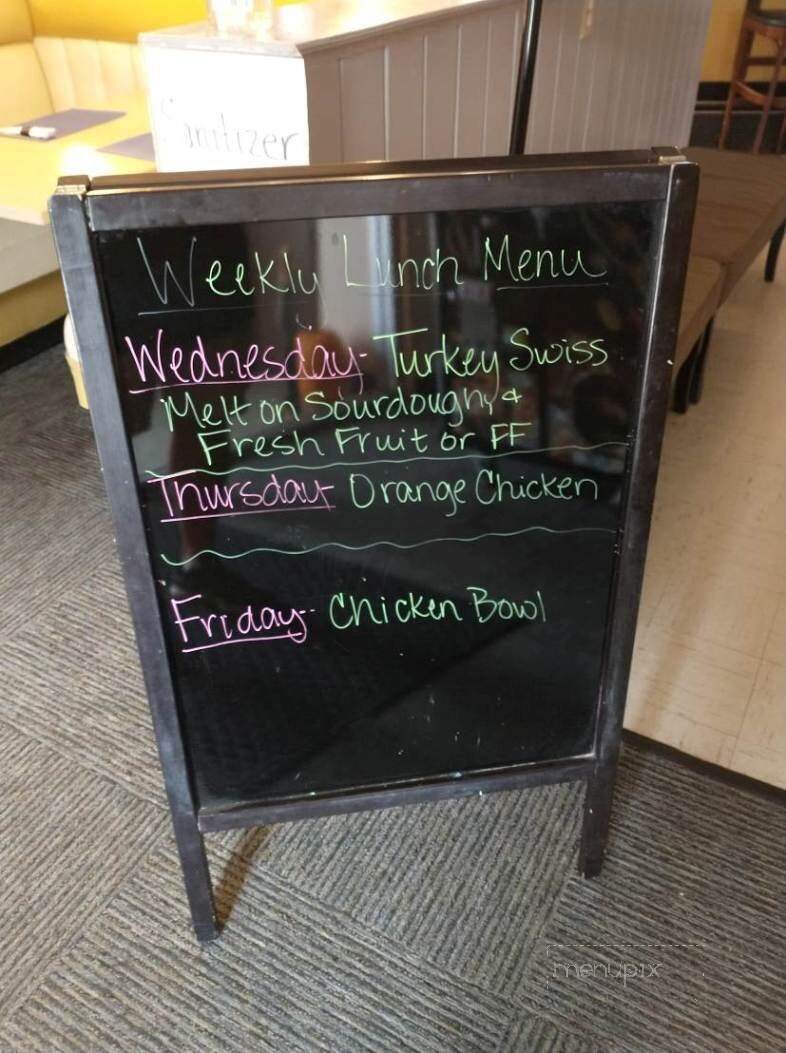 Sanitizer
Weekly Lunch Menu
Wednesday- Turkey Swiss
Melt on Sourdough, &
Fresh Fruit or FF
Thursday- Orange Chicken
Friday- Chicken Bowl
menupix